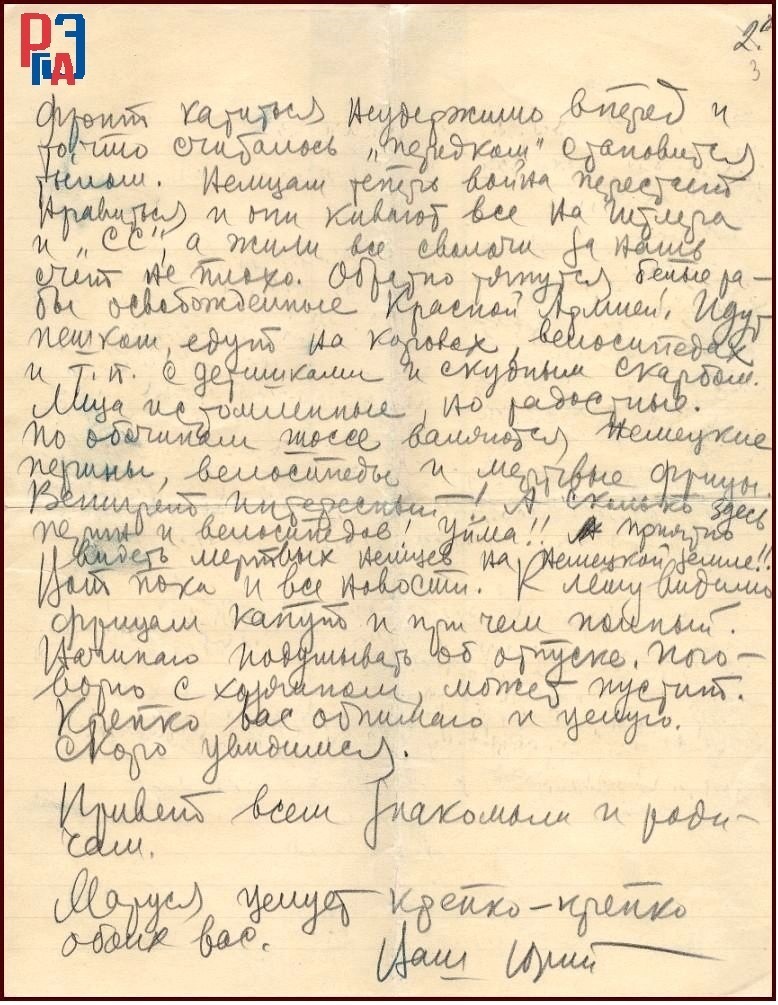 РГАЭ
2.
3
фронт катиться неудержимо вперед и
то что считалось „передком" становится
тылом. Немцам теперь война перестает
нравиться и они кивают все на Гитлера
и „СС", а жили все сволочи за наш
счет не плохо. Обратно тянутся белые ра-
бы освобожденные Красной Армией. Идут
пешком, едут на коровах, велосипедах
и т.п. с детишками и скудным скарбом.
Лица истомленные, но радостные.
По обочинам шоссе валяются немецкие
перины, велосипеды и мертвые фрицы.
Венигрет интересный! А сколько здесь
перин и велосипедов! Уйма!! А приятно
видеть мертвых немцев на немецкой земле!!
Вот пока и все новости. К лету видимо
фрицам капут и при чем полный.
Начинаю подумывать об отпуске. Пого-
ворю с хозяином, может пустит.
Крепко вас обнимаю и целую.
Скоро увидимся.
Привет всем знакомым и роди-
чам.
Маруся целует крепко-крепко
обоих вас.
Ваш Юрий